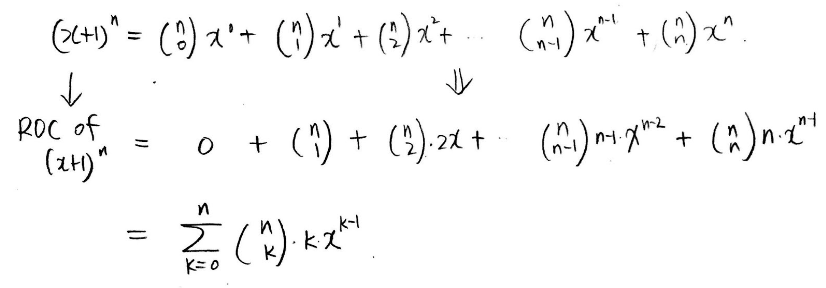 (x+1)^n = (n 0) x^0 + (n 1) x^1 + (n 2) x^2 + ·· (n n-1) x^{n-1} + (n n) x^n.
↓ ⇓
ROC of (x+1)^n = 0 + (n 1) + (n 2)·2x + ·· (n n-1) n-1·x^{n-2} + (n n) n·x^{n-1}
= Σ_{k=0}^{n} (n k)·k·x^{k-1}